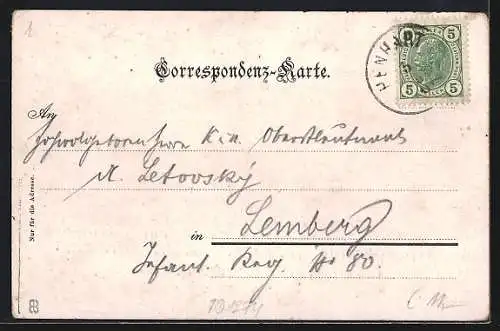 1
5 5
5 5
Correspondenz-Karte.
An
Hochwolgeboren Herrn K. u. Oberstleutnant
A. Letovský
in Lemberg
Infant. Reg. No 80.
Nur für die Adresse.